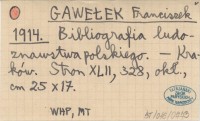 GAWEŁEK Franciszek
1914. Bibliografia ludo-
znawstwa polskiego. — Kra-
ków. Stron XLII, 328, okł.,
cm 25 x 17.
WHP, MT